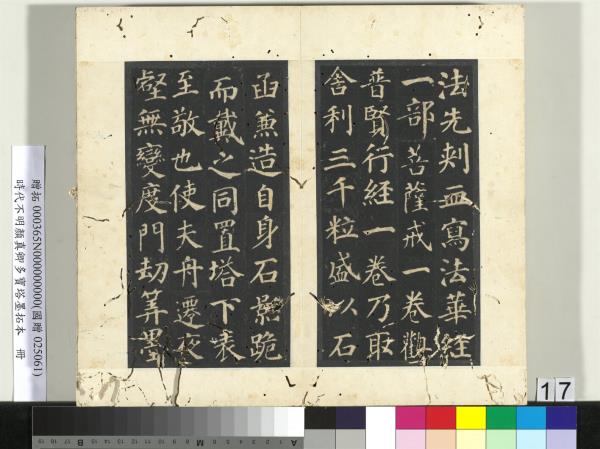 法先刾血寫法華經
一部菩薩戒一卷觀
普賢行經一卷乃取
舍利三千粒盛以石
函兼造自身石影跪
而戴之同置塔下表
至敬也使夫舟遷夜
壑無變度門劫筭墨
贈拓 000365N000000000(國贈 025061)
時代不明顏真卿多寶塔墨拓本 冊
17
A
M
B